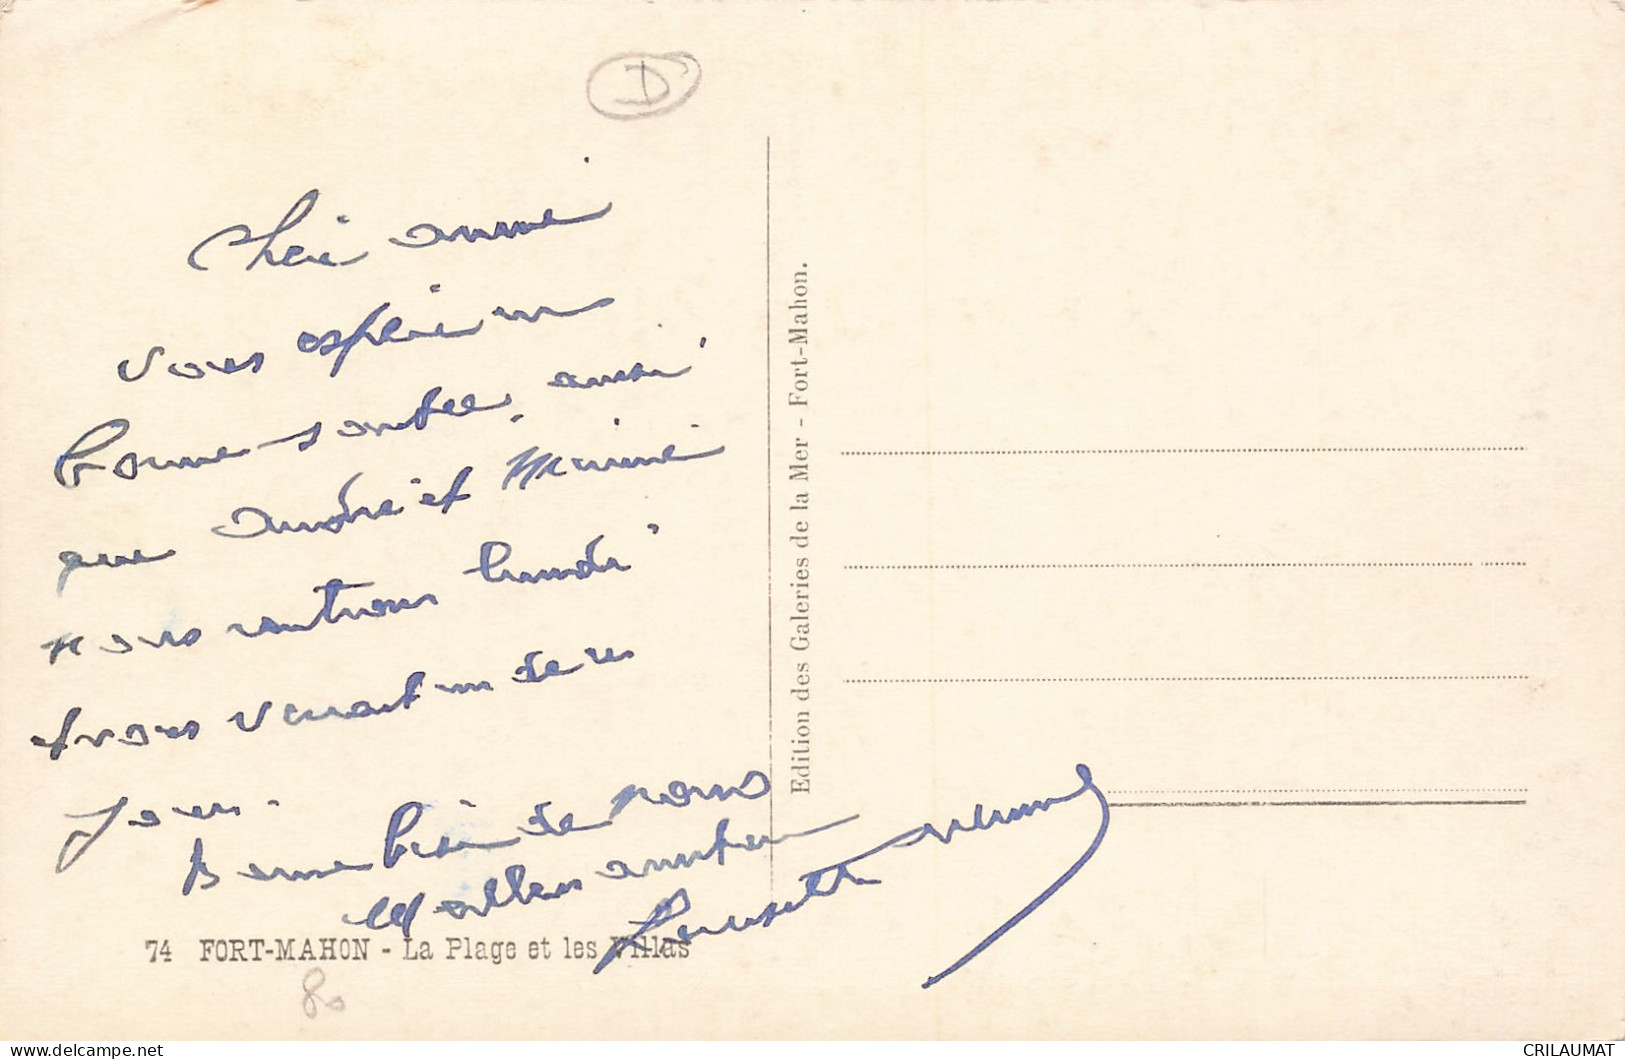 D
Chère amie
vous espérons
bonne santée, ainsi
que André et Mimine
nous rentrons lundi
vous de ces
Jours.
de nous
Edition des Galeries de la Mer - Fort-Mahon.
74 FORT-MAHON - La Plage et les Villas
80
www.delcampe.net
CRILAUMAT